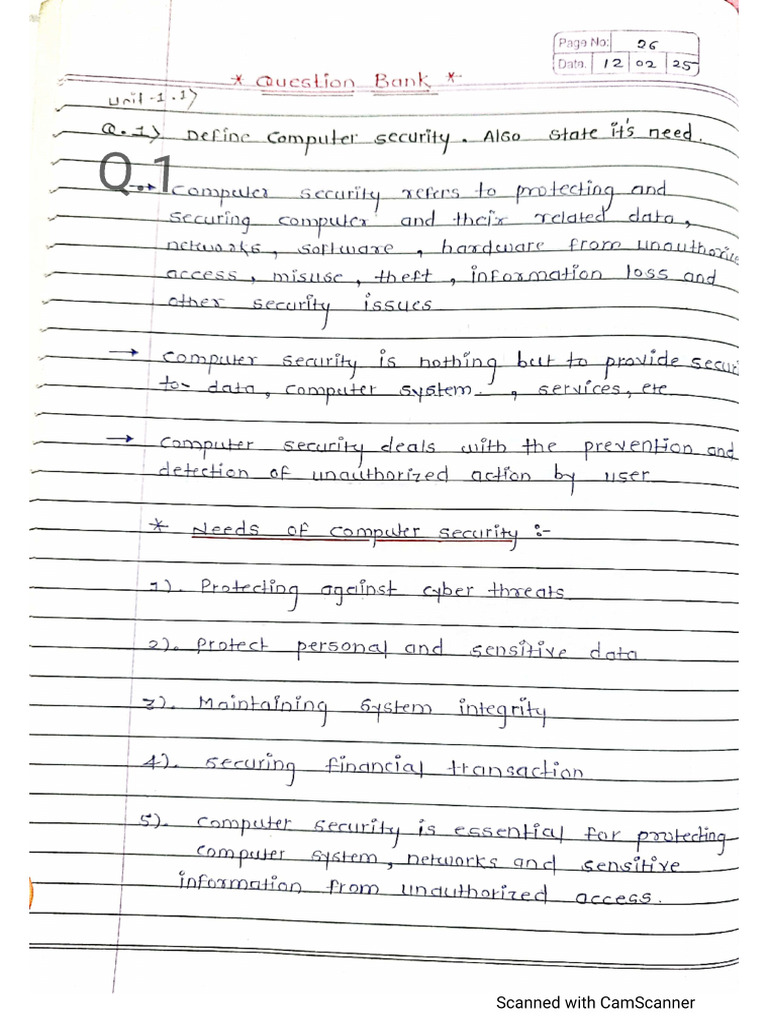 Page No: 26
Date. 12 02 25
* Question Bank *
Unit-1.1>
Q.1) Define computer security. Also state it's need.
Q.1
→ Computer security refers to protecting and
securing computer and their related data,
networks, software, hardware from unauthorize
access, misuse, theft, information loss and
other security issues
→ Computer security is nothing but to provide secur
to data, computer system. , services, etc
→ Computer security deals with the prevention and
detection of unauthorized action by user
* Needs of computer security :-
1). Protecting against cyber threats
2). Protect personal and sensitive data
3). Maintaining system integrity
4). Securing financial transaction
5). Computer security is essential for protecting
computer system, networks and sensitive
information from unauthorized access.
Scanned with CamScanner